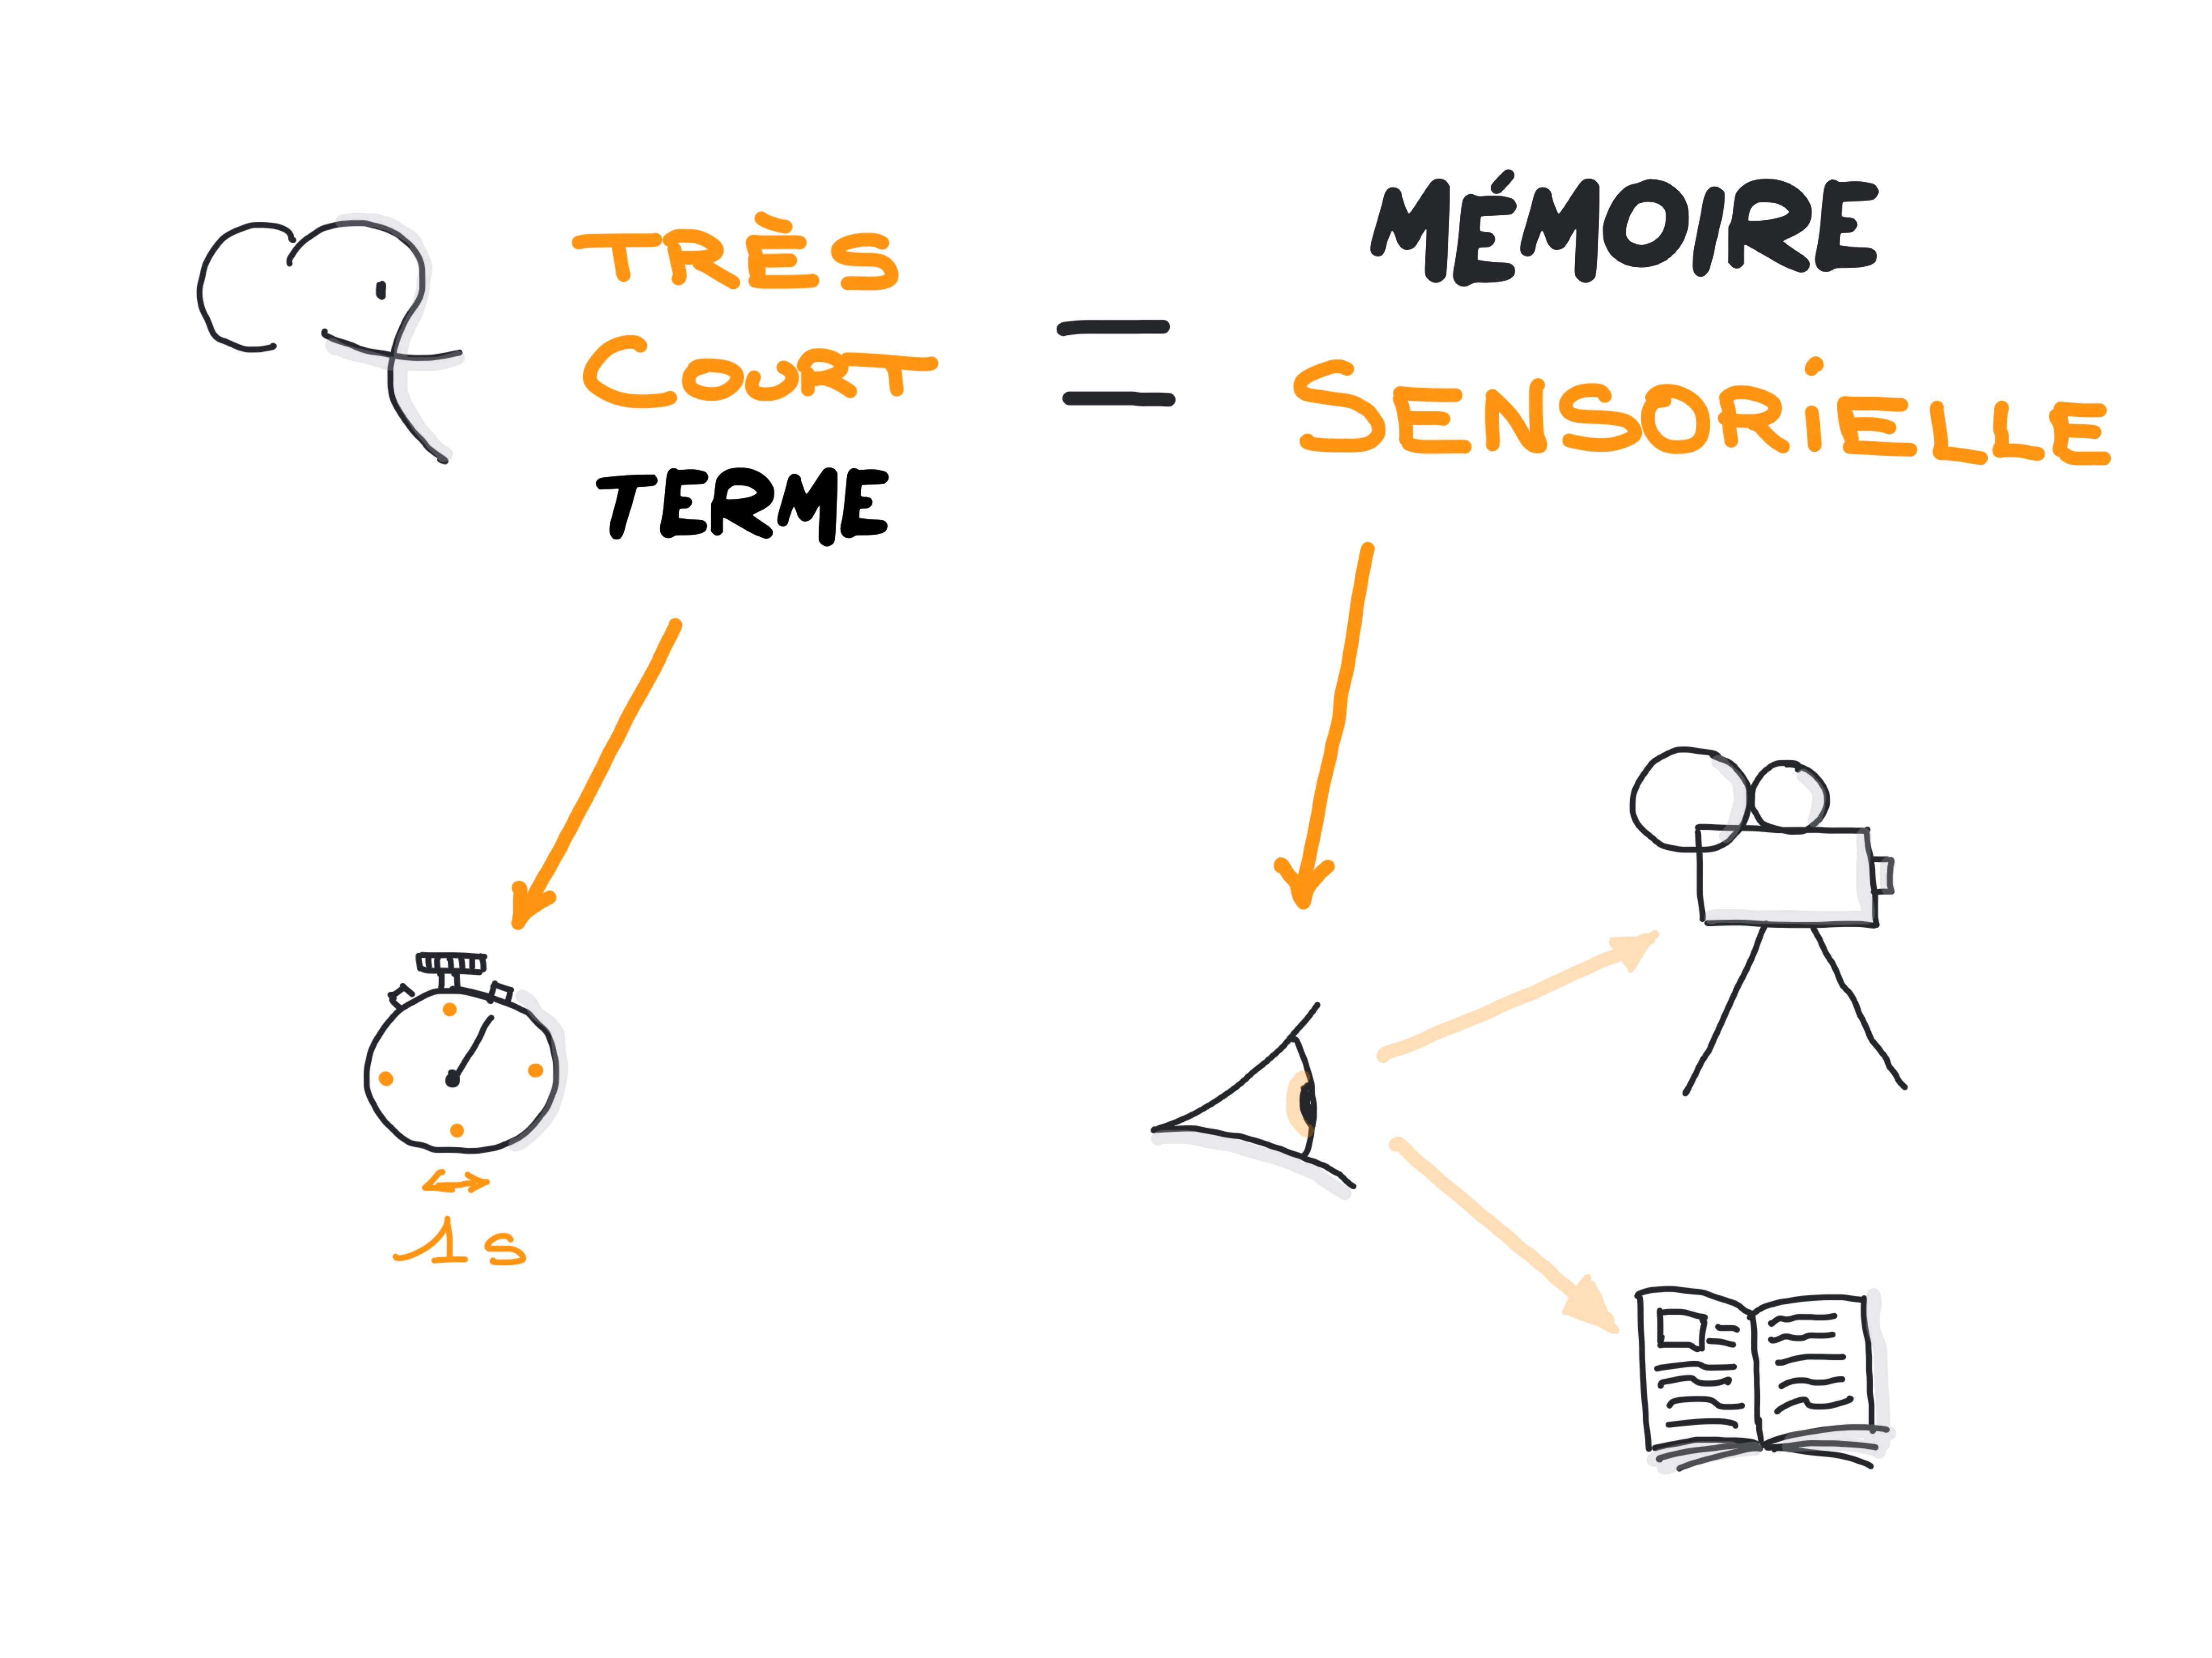 TRÈS
COURT
TERME
=
MÉMOIRE
SENSORIELLE
1s